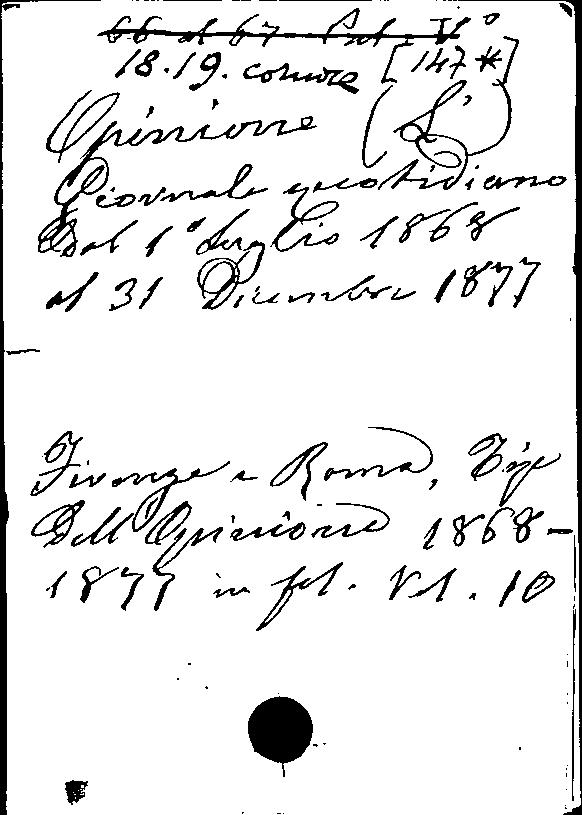 66 al 67 Pal. V°
18.19. cornice [147*]
Opinione (L')
Giornale quotidiano
Dal 1° Luglio 1868
al 31 Dicembre 1877
Firenze e Roma, Tip
Dell'Opinione 1868-
1877 in fol. Vol. 10